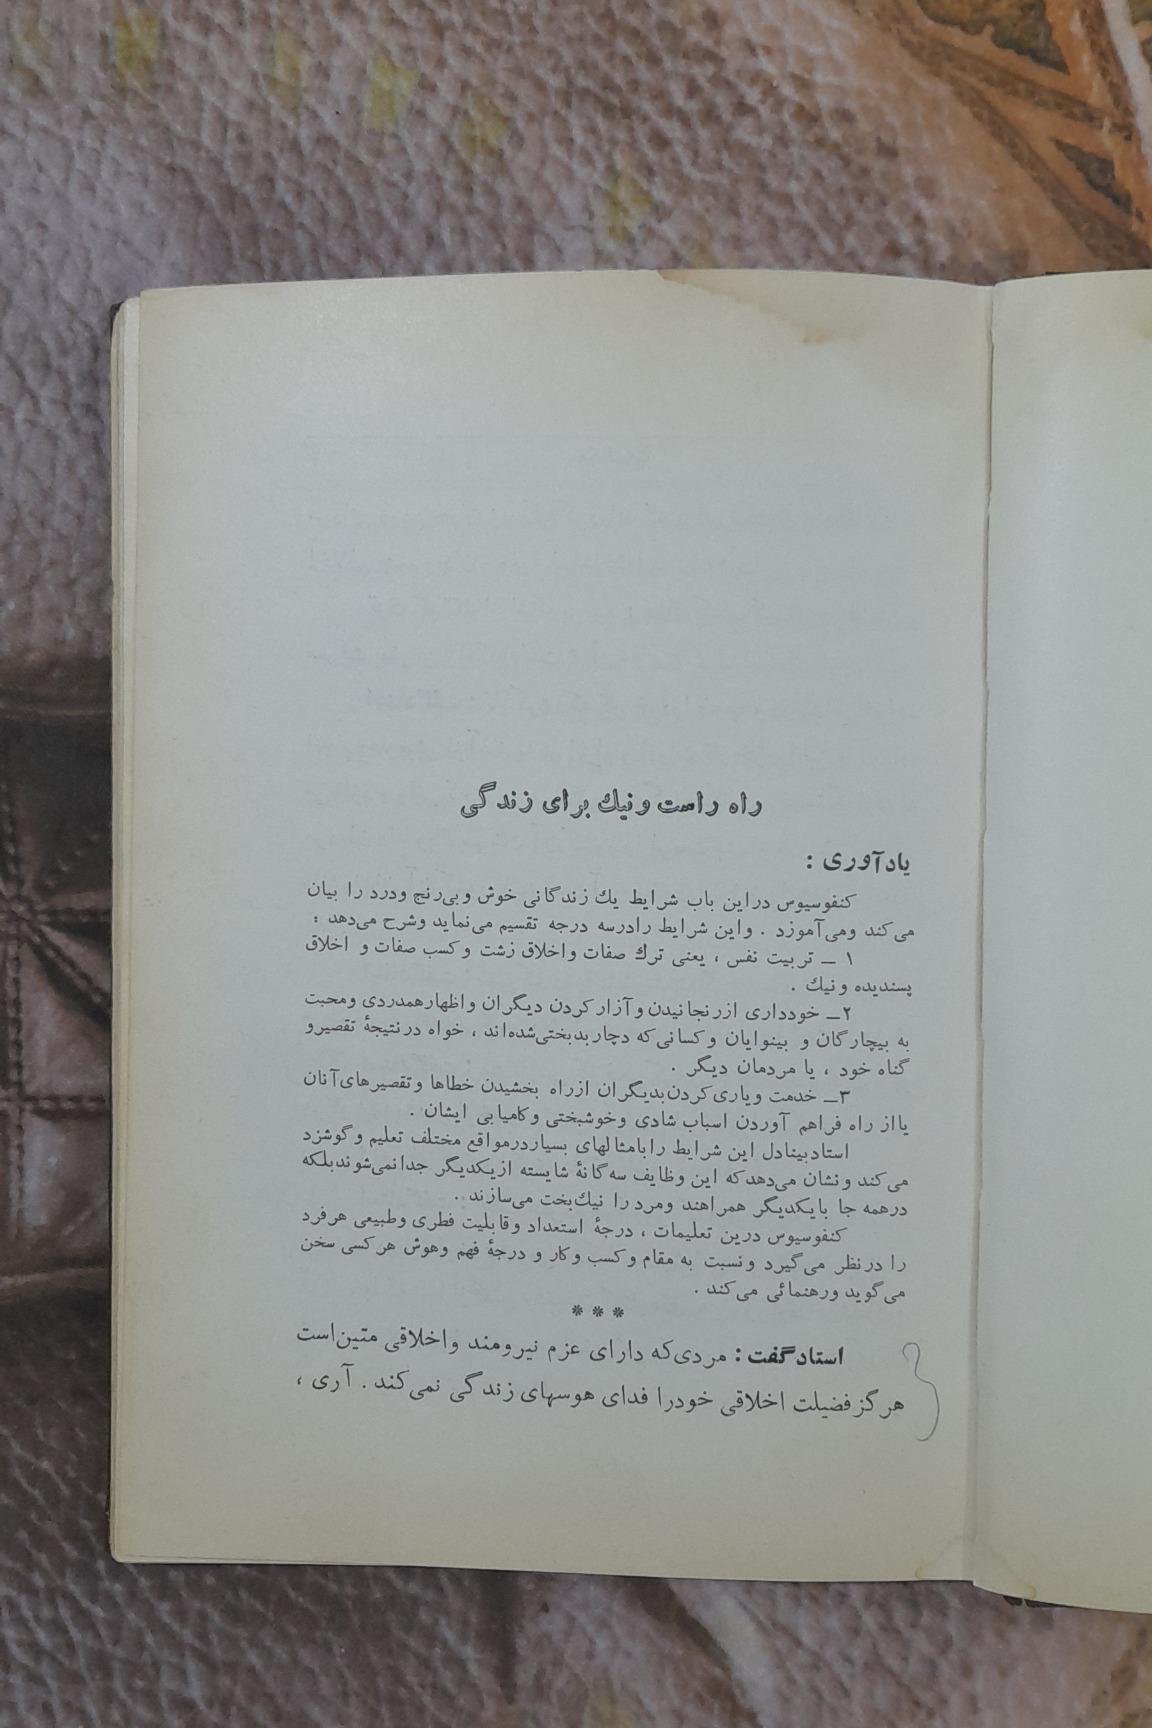 راه راست و نیك برای زندگی
یادآوری :
کنفوسیوس در این باب شرایط یك زندگانی خوش و بی‌رنج و درد را بیان
می‌کند و می‌آموزد . و این شرایط را در سه درجه تقسیم می‌نماید و شرح می‌دهد :
۱ ــ تربیت نفس ، یعنی ترك صفات و اخلاق زشت و کسب صفات و اخلاق
پسندیده و نیك .
۲ــ خودداری از رنجانیدن و آزار کردن دیگران و اظهار همدردی و محبت
به بیچارگان و بینوایان و کسانی که دچار بدبختی شده‌اند ، خواه در نتیجهٔ تقصیر و
گناه خود ، یا مردمان دیگر .
۳ــ خدمت و یاری کردن بدیگران از راه بخشیدن خطاها و تقصیرهای آنان
یا از راه فراهم آوردن اسباب شادی و خوشبختی و کامیابی ایشان .
استاد بینادل این شرایط را با مثالهای بسیار در مواقع مختلف تعلیم و گوشزد
می‌کند و نشان می‌دهد که این وظایف سه گانهٔ شایسته از یکدیگر جدا نمی‌شوند بلکه
در همه جا با یکدیگر همراهند و مرد را نیك‌بخت می‌سازند .
کنفوسیوس درین تعلیمات ، درجهٔ استعداد و قابلیت فطری و طبیعی هر فرد
را در نظر می‌گیرد و نسبت به مقام و کسب و کار و درجهٔ فهم و هوش هر کسی سخن
می‌گوید و رهنمائی می‌کند .
* * *
استاد گفت : مردی که دارای عزم نیرومند و اخلاقی متین است
هر گز فضیلت اخلاقی خود را فدای هوسهای زندگی نمی‌کند . آری ،